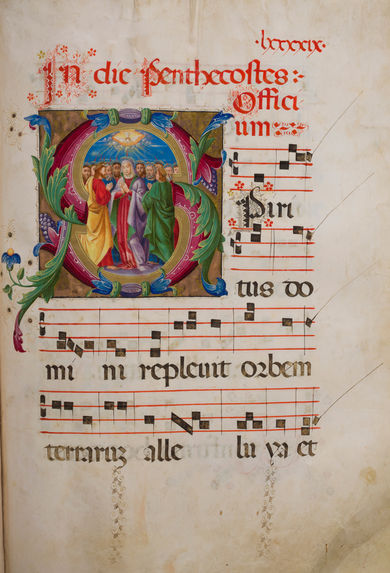 ·lxxxxix·
In die Penthecostes:-
Offici
um
SPiri
tus do
mi ni repleuit orbem
terraruz alle lu ya et